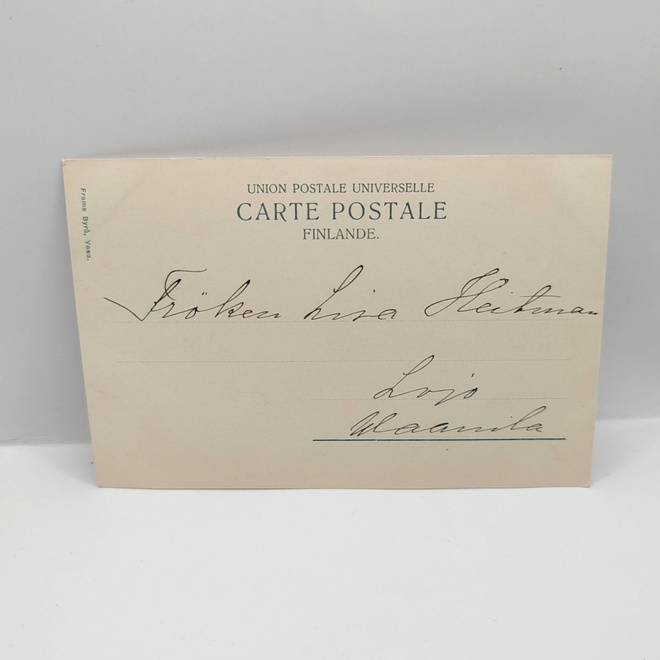 UNION POSTALE UNIVERSELLE
CARTE POSTALE
FINLANDE.
Frams Byrå, Vasa.
Fröken Lisa Heitman
Lojo
Waanila